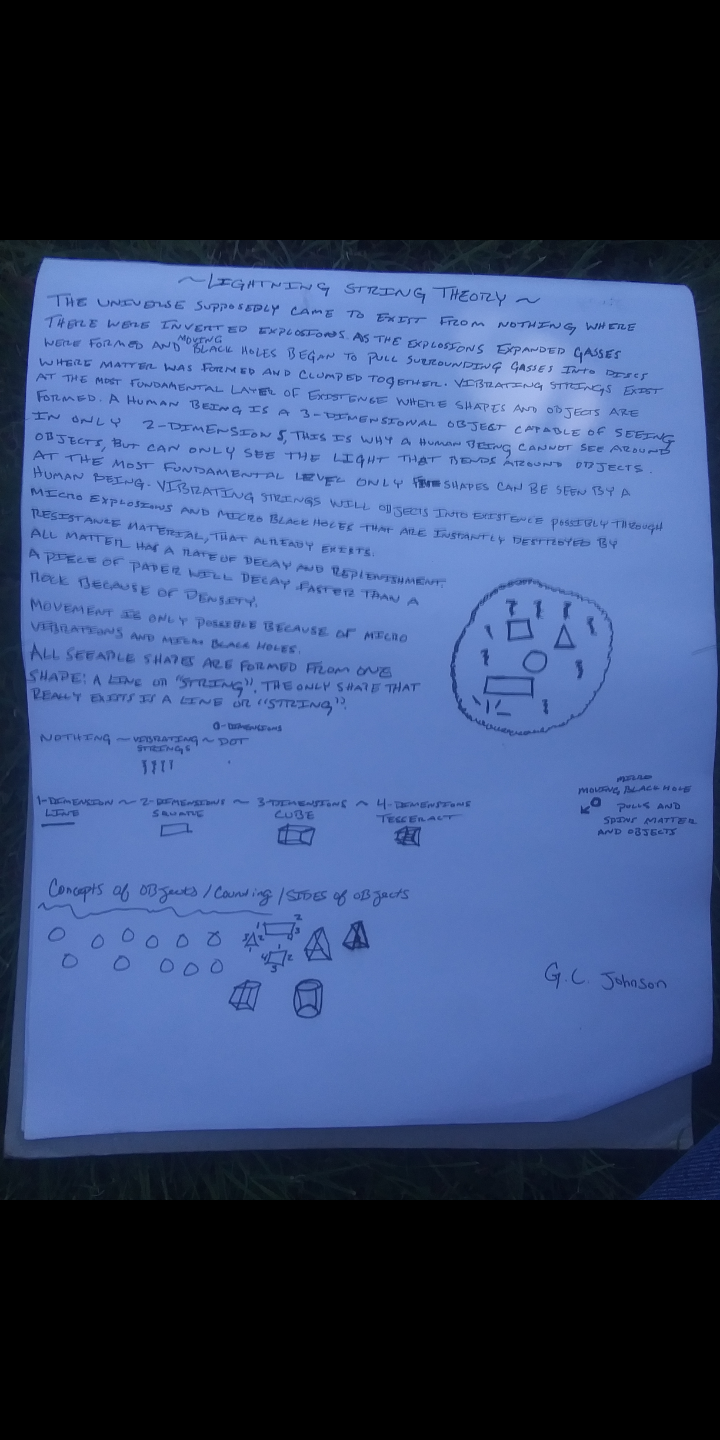 ~LIGHTNING STRING THEORY~
THE UNIVERSE SUPPOSEDLY CAME TO EXIST FROM NOTHING WHERE
THERE WERE INVERTED EXPLOSIONS. AS THE EXPLOSIONS EXPANDED GASSES
WERE FORMED AND MOVING BLACK HOLES BEGAN TO PULL SURROUNDING GASSES INTO DISCS
WHERE MATTER WAS FORMED AND CLUMPED TOGETHER. VIBRATING STRINGS EXIST
AT THE MOST FUNDAMENTAL LAYER OF EXISTENCE WHERE SHAPES AND OBJECTS ARE
FORMED. A HUMAN BEING IS A 3-DIMENSIONAL OBJECT CAPABLE OF SEEING
IN ONLY 2-DIMENSIONS, THIS IS WHY A HUMAN BEING CANNOT SEE AROUND
OBJECTS, BUT CAN ONLY SEE THE LIGHT THAT BENDS AROUND OBJECTS.
AT THE MOST FUNDAMENTAL LEVEL ONLY SHAPES CAN BE SEEN BY A
HUMAN BEING. VIBRATING STRINGS WILL OBJECTS INTO EXISTENCE POSSIBLY THROUGH
MICRO EXPLOSIONS AND MICRO BLACK HOLES THAT ARE INSTANTLY DESTROYED BY
RESISTANCE MATERIAL, THAT ALREADY EXISTS.
ALL MATTER HAS A RATE OF DECAY AND REPLENISHMENT.
A PIECE OF PAPER WILL DECAY FASTER THAN A
ROCK BECAUSE OF DENSITY.
MOVEMENT IS ONLY POSSIBLE BECAUSE OF MICRO
VIBRATIONS AND MICRO BLACK HOLES.
ALL SEEABLE SHAPES ARE FORMED FROM ONE
SHAPE: A LINE OR "STRING". THE ONLY SHAPE THAT
REALLY EXISTS IS A LINE OR "STRING".
0-DIMENSIONS
NOTHING ~ VIBRATING STRINGS ~ DOT
1-DIMENSION ~ 2-DIMENSIONS ~ 3-DIMENSIONS ~ 4-DIMENSIONS
LINE SQUARE CUBE TESSERACT
MICRO
MOVING BLACK HOLE
PULLS AND
SPINS MATTER
AND OBJECTS
Concepts of OBJects / Counting / SIDES of OBJects
1 2 3
1 2 3 4
2 3 4
G.C. Johnson